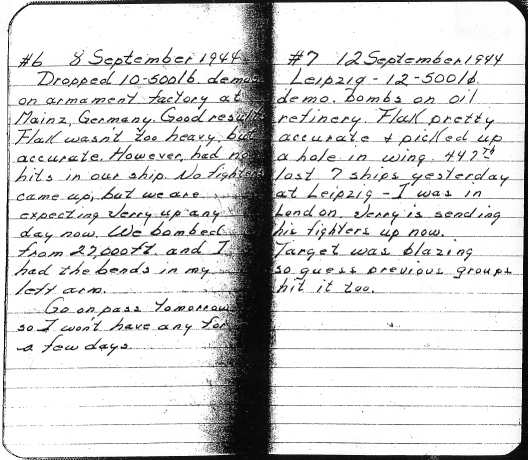 #6 8 September 1944
Dropped 10-500lb. demo
on armament factory at
Mainz, Germany. Good results
Flak wasn't too heavy, but
accurate. However, had no
hits in our ship. No fighters
came up, but we are
expecting Jerry up any
day now. We bombed
from 27,000ft. and I
had the bends in my
left arm.
Go on pass tomorrow
so I won't have any for
a few days.
#7 12 September 1944
Leipzig - 12-500lb.
demo. bombs on oil
refinery. Flak pretty
accurate + picked up
a hole in wing. 447th
lost 7 ships yesterday
at Leipzig - I was in
London. Jerry is sending
his fighters up now.
Target was blazing
so guess previous groups
hit it too.